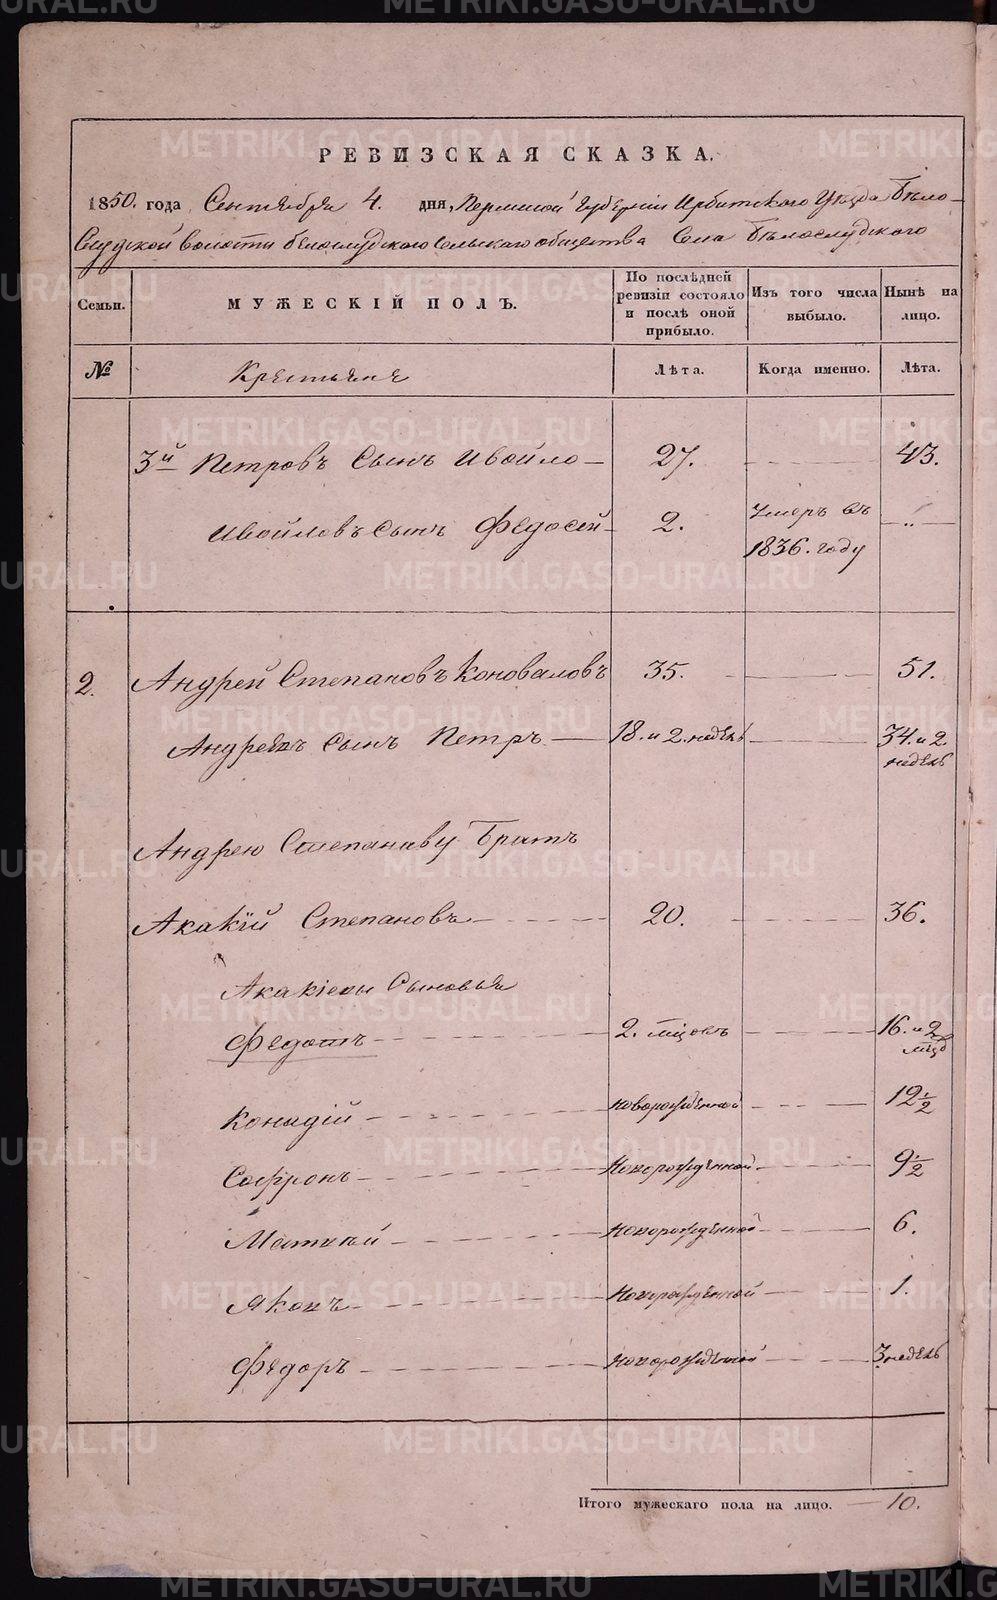 РЕВИЗСКАЯ СКАЗКА.
1850. года Сентября 4. дня, Пермской Губерніи Ирбитскаго Уезда Бѣло-
Слудской волости белослудскаго Сельскаго общества Села Бѣлослудского
Семьи. МУЖЕСКІЙ ПОЛЪ. По послѣдней ревизіи состояло и послѣ оной прибыло. Изъ того числа выбыло. Нынѣ на лицо.
№ Крестьяне Лѣта. Когда именно. Лѣта.
3й Петровъ Сынъ Ивойло 27. 43.
Ивойловъ сынъ Федосей 2. Умеръ въ 1836. году „
2. Андрей Степановъ Коноваловъ 35. 51.
Андреевъ сынъ Петръ 18. и 2. недель 34. и 2. недель
Андрею Степанову Братъ
Акакій Степановъ 20. 36.
Акакіевы Сыновья
Федотъ 2. мцовъ 16. и 2 мцв
Конадій новорожденной 12 1/2
Сафронъ Новорожденной 9 1/2
Матвей новорожденной 6.
Яковъ Новорожденной 1.
Федоръ новорожденной 3 недель
Итого мужескаго пола на лицо. 10.
METRIKI.GASO-URAL.RU